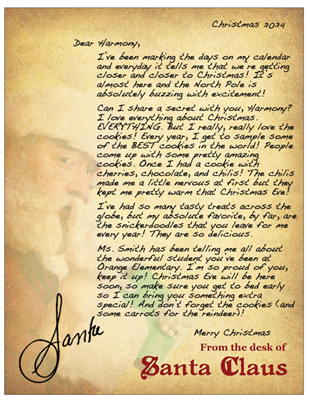 Christmas 2024
Dear Harmony,
I've been marking the days on my calendar
and everyday it tells me that we're getting
closer and closer to Christmas! It's
almost here and the North Pole is
absolutely buzzing with excitement!
Can I share a secret with you, Harmony?
I love everything about Christmas.
EVERYTHING. But I really, really love the
cookies! Every year, I get to sample some
of the BEST cookies in the world! People
come up with some pretty amazing
cookies. Once I had a cookie with
cherries, chocolate, and chilis! The chilis
made me a little nervous at first but they
kept me pretty warm that Christmas Eve!
I've had so many tasty treats across the
globe, but my absolute favorite, by far, are
the snickerdoodles that you leave for me
every year! They are so delicious.
Ms. Smith has been telling me all about
the wonderful student you've been at
Orange Elementary. I'm so proud of you,
keep it up! Christmas Eve will be here
soon, so make sure you get to bed early
so I can bring you something extra
special! And don't forget the cookies (and
some carrots for the reindeer)!
Santa
Merry Christmas
From the desk of
Santa Claus